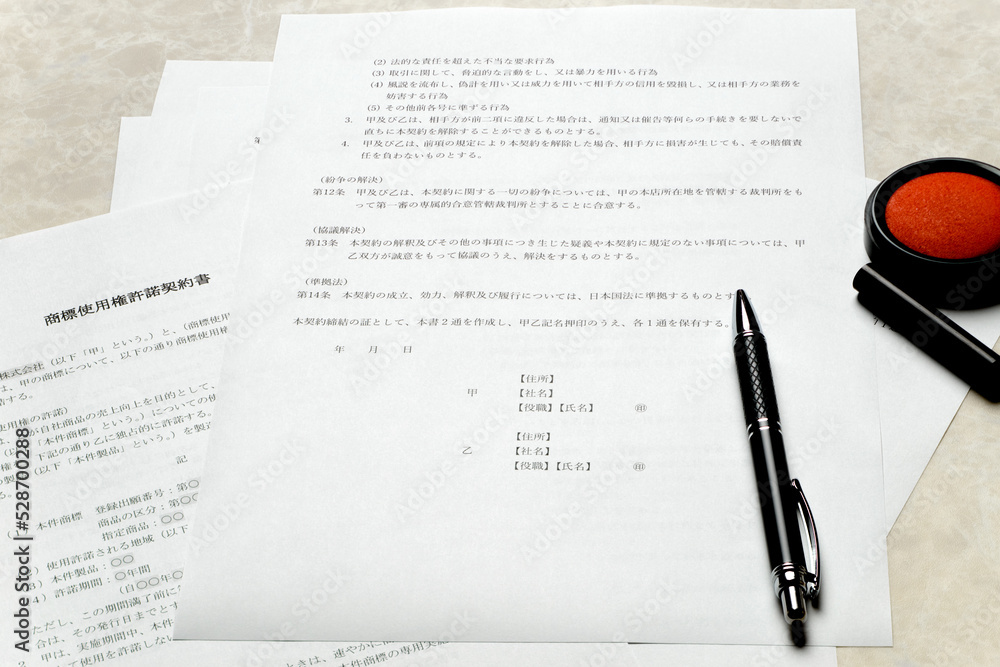 (2) 法的な責任を超えた不当な要求行為
(3) 取引に関して、脅迫的な言動をし、又は暴力を用いる行為
(4) 風説を流布し、偽計を用い又は威力を用いて相手方の信用を毀損し、又は相手方の業務を
妨害する行為
(5) その他前各号に準ずる行為
3. 甲及び乙は、相手方が前二項に違反した場合は、通知又は催告等何らの手続きを要しないで
直ちに本契約を解除することができるものとする。
4. 甲及び乙は、前項の規定により本契約を解除した場合、相手方に損害が生じても、その賠償責
任を負わないものとする。
（紛争の解決）
第12条 甲及び乙は、本契約に関する一切の紛争については、甲の本店所在地を管轄する裁判所をも
って第一審の専属的合意管轄裁判所とすることに合意する。
（協議解決）
第13条 本契約の解釈及びその他の事項につき生じた疑義や本契約に規定のない事項については、甲
乙双方が誠意をもって協議のうえ、解決をするものとする。
（準拠法）
第14条 本契約の成立、効力、解釈及び履行については、日本国法に準拠するものとす
本契約締結の証として、本書２通を作成し、甲乙記名押印のうえ、各１通を保有する。
年 月 日
甲
【住所】
【社名】
【役職】【氏名】 ㊞
乙
【住所】
【社名】
【役職】【氏名】 ㊞
商標使用権許諾契約書
株式会社（以下「甲」という。）と、（商標使用
は、甲の商標について、以下の通り商標使用権
結する。
使用権の許諾）
が自社商品の売上向上を目的として、
「本件商標」という。）についての使
下記の通り乙に独占的に許諾する。
（以下「本件製品」という。）を製造
記
本件商標 登録出願番号：第〇
商品の区分：第〇〇
指定商品：〇〇
）使用許諾される地域（以下
）本件製品：〇〇
3）許諾期間：〇年間
（自〇〇年〇
ただし、この期間満了前に
合は、その発行日までとす
2 甲は、実施期間中、本件
て使用を許諾しない
ときは、速やかに商
本件商標の専用実施
Adobe Stock | #528700288
Adobe Stock